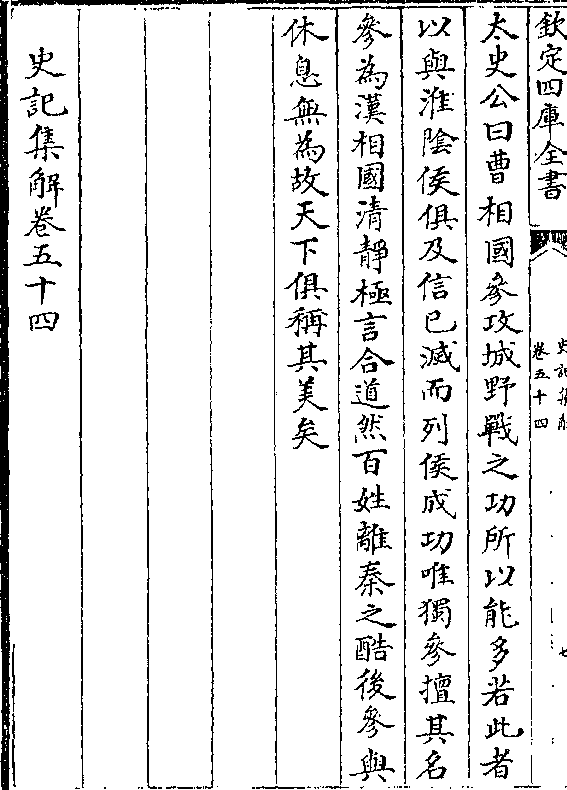 欽定四庫全書
史記集解
卷五十四
七
太史公曰曹相國參攻城野戰之功所以能多若此者
以與淮陰侯俱及信已滅而列侯成功唯獨參擅其名
參為漢相國清靜極言合道然百姓離秦之酷後參與
休息無為故天下俱稱其美矣
史記集解卷五十四